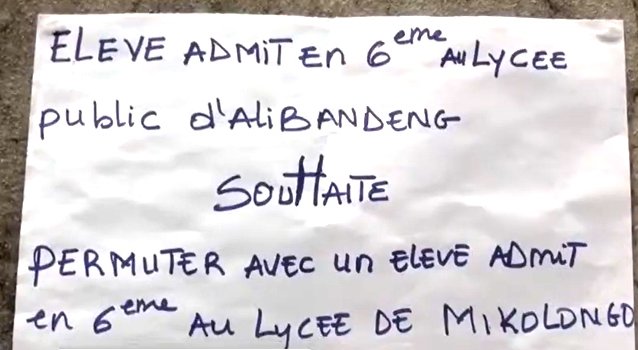 ELEVE ADMIT En 6eme AU LYCEE
public d'ALiBANDENG
SOUHAITE
PERMUTER AVEC un ELEVE ADMIT
en 6eme AU LYCEE DE MIKOLONGO